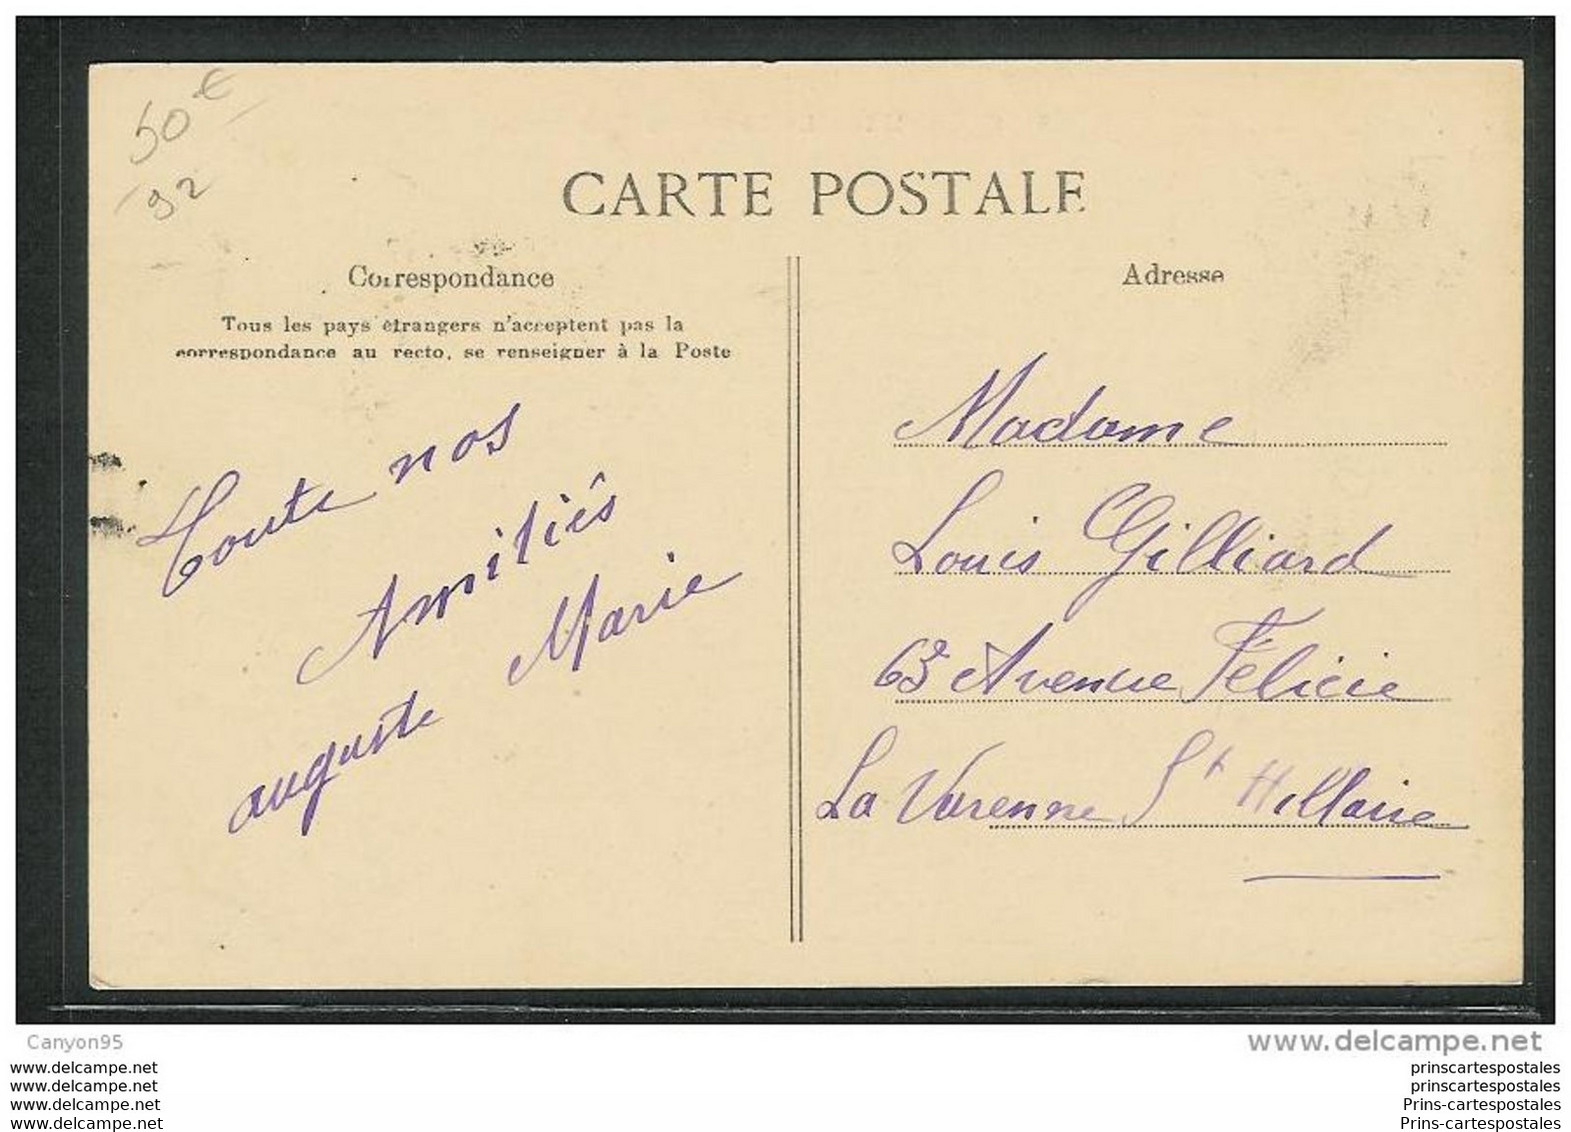 50 €
92
CARTE POSTALE
Correspondance
Tous les pays étrangers n'acceptent pas la
correspondance au recto, se renseigner à la Poste
Adresse
Toute nos
Amitiés
Marie
auguste
Madame
Louis Gilliard
63 Avenue Félicie
La Varenne St Hillaire
Canyon95
www.delcampe.net
www.delcampe.net
www.delcampe.net
www.delcampe.net
www.delcampe.net
prinscartespostales
prinscartespostales
Prins-cartespostales
Prins-cartespostales